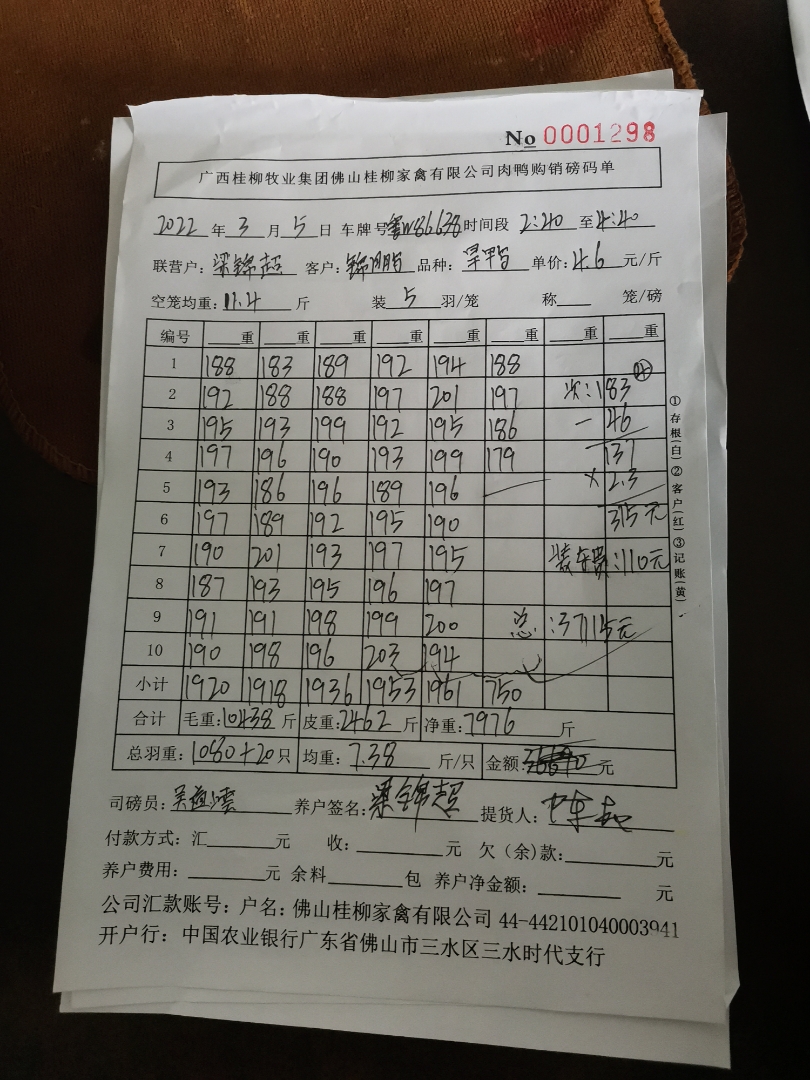 No 0001298
广西桂柳牧业集团佛山桂柳家禽有限公司肉鸭购销磅码单
2022 年 3 月 5 日 车牌号 W86638 时间段 2:40 至 4:40
联营户: 梁锦超 客户: 品种: 单价: 4.6 元/斤
空笼均重: 11.4 斤 装 5 羽/笼 称 笼/磅
编号 重 重 重 重 重 重 重 重
1 188 183 189 192 194 188
2 192 188 188 197 201 197 次: 183
3 195 193 199 192 195 186 - 46
4 197 196 190 193 199 179 137
5 193 186 196 189 196 × 2.3
6 197 189 192 195 190 315元
7 190 201 193 197 195 装车费: 110元
8 187 193 195 196 197
9 191 191 198 199 200 总: 37115元
10 190 198 196 203 194
小计 1920 1918 1936 1953 1961 750
合计 毛重: 10438 斤 皮重: 2462 斤 净重: 7976 斤
总羽重: 1080+20 只 均重: 7.38 斤/只 金额: 元
①存根(白)②客户(红)③记账(黄)
司磅员: 养户签名: 梁锦超 提货人:
付款方式: 汇 元 收: 元 欠(余)款: 元
养户费用: 元 余料 包 养户净金额: 元
公司汇款账号: 户名: 佛山桂柳家禽有限公司 44-442101040003941
开户行: 中国农业银行广东省佛山市三水区三水时代支行